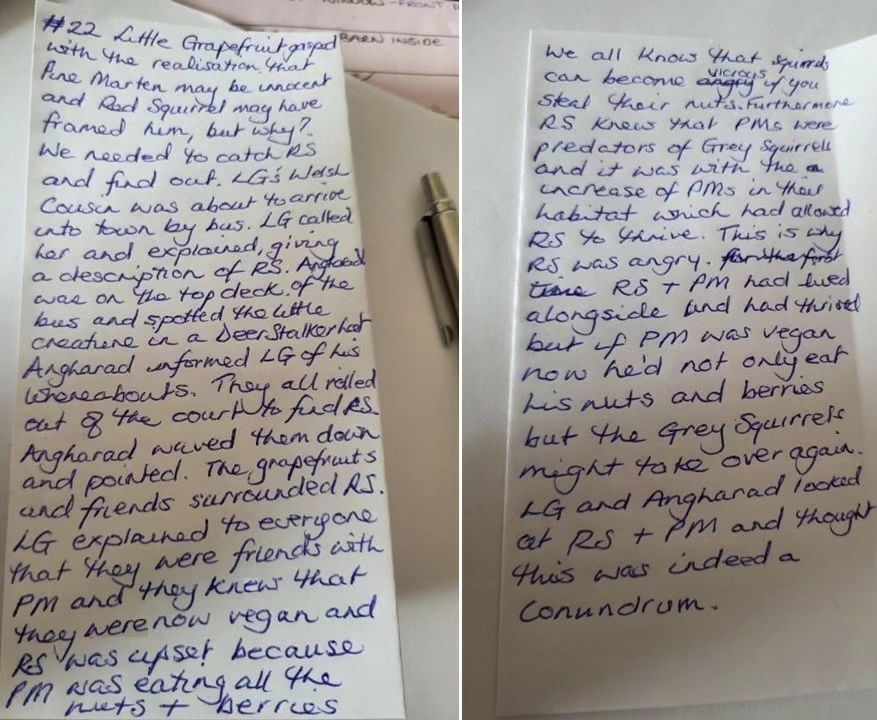 WINDOW - FRONT
BARN INSIDE
#22 Little Grapefruit gasped
with the realisation that
Pine Marten may be innocent
and Red Squirrel may have
framed him, but why?
We needed to catch RS
and find out. LG's Welsh
Cousin was about to arrive
into town by bus. LG called
her and explained, giving
a description of RS. Angharad
was on the top deck of the
bus and spotted the little
creature in a Deerstalker hat
Angharad informed LG of his
whereabouts. They all rolled
out of the court to find RS.
Angharad waved them down
and pointed. The grapefruits
and friends surrounded RS.
LG explained to everyone
that they were friends with
PM and they knew that
they were now vegan and
RS was upset because
PM was eating all the
nuts + berries
We all know that squirrels
can become angry vicious if you
steal their nuts. Furthermore
RS knew that PMs were
predators of Grey Squirrels
and it was with the a
increase of PMs in their
habitat which had allowed
RS to thrive. This is why
RS was angry. for the first
time RS + PM had lived
alongside and had thrived
but if PM was vegan
now he'd not only eat
his nuts and berries
but the Grey Squirrels
might take over again.
LG and Angharad looked
at RS + PM and thought
this was indeed a
Conundrum.